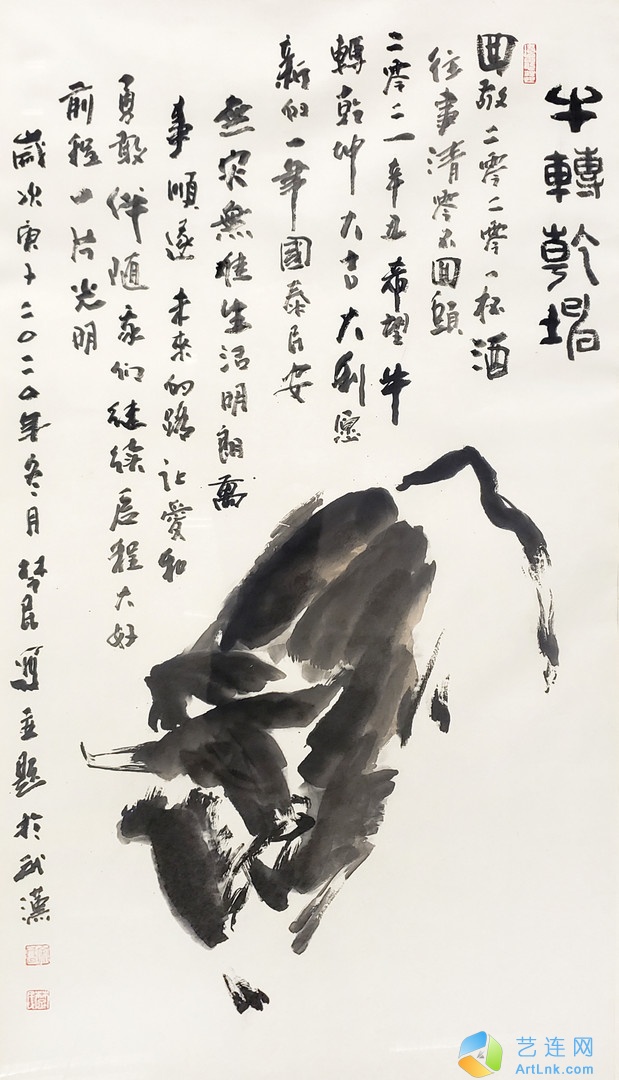 牛轉乾坤
回敬二零二零一杯酒
往事清零不回頭
二零二一辛丑希望牛
轉乾坤大吉大利愿
新的一年國泰民安
無灾無难生活明朗萬
事順遂未来的路让愛和
勇敢伴随我们继续启程大好
前程一片光明
歲次庚子二〇二〇年冬月楚民寫並题於武漢
艺连网
ArtLnk.com